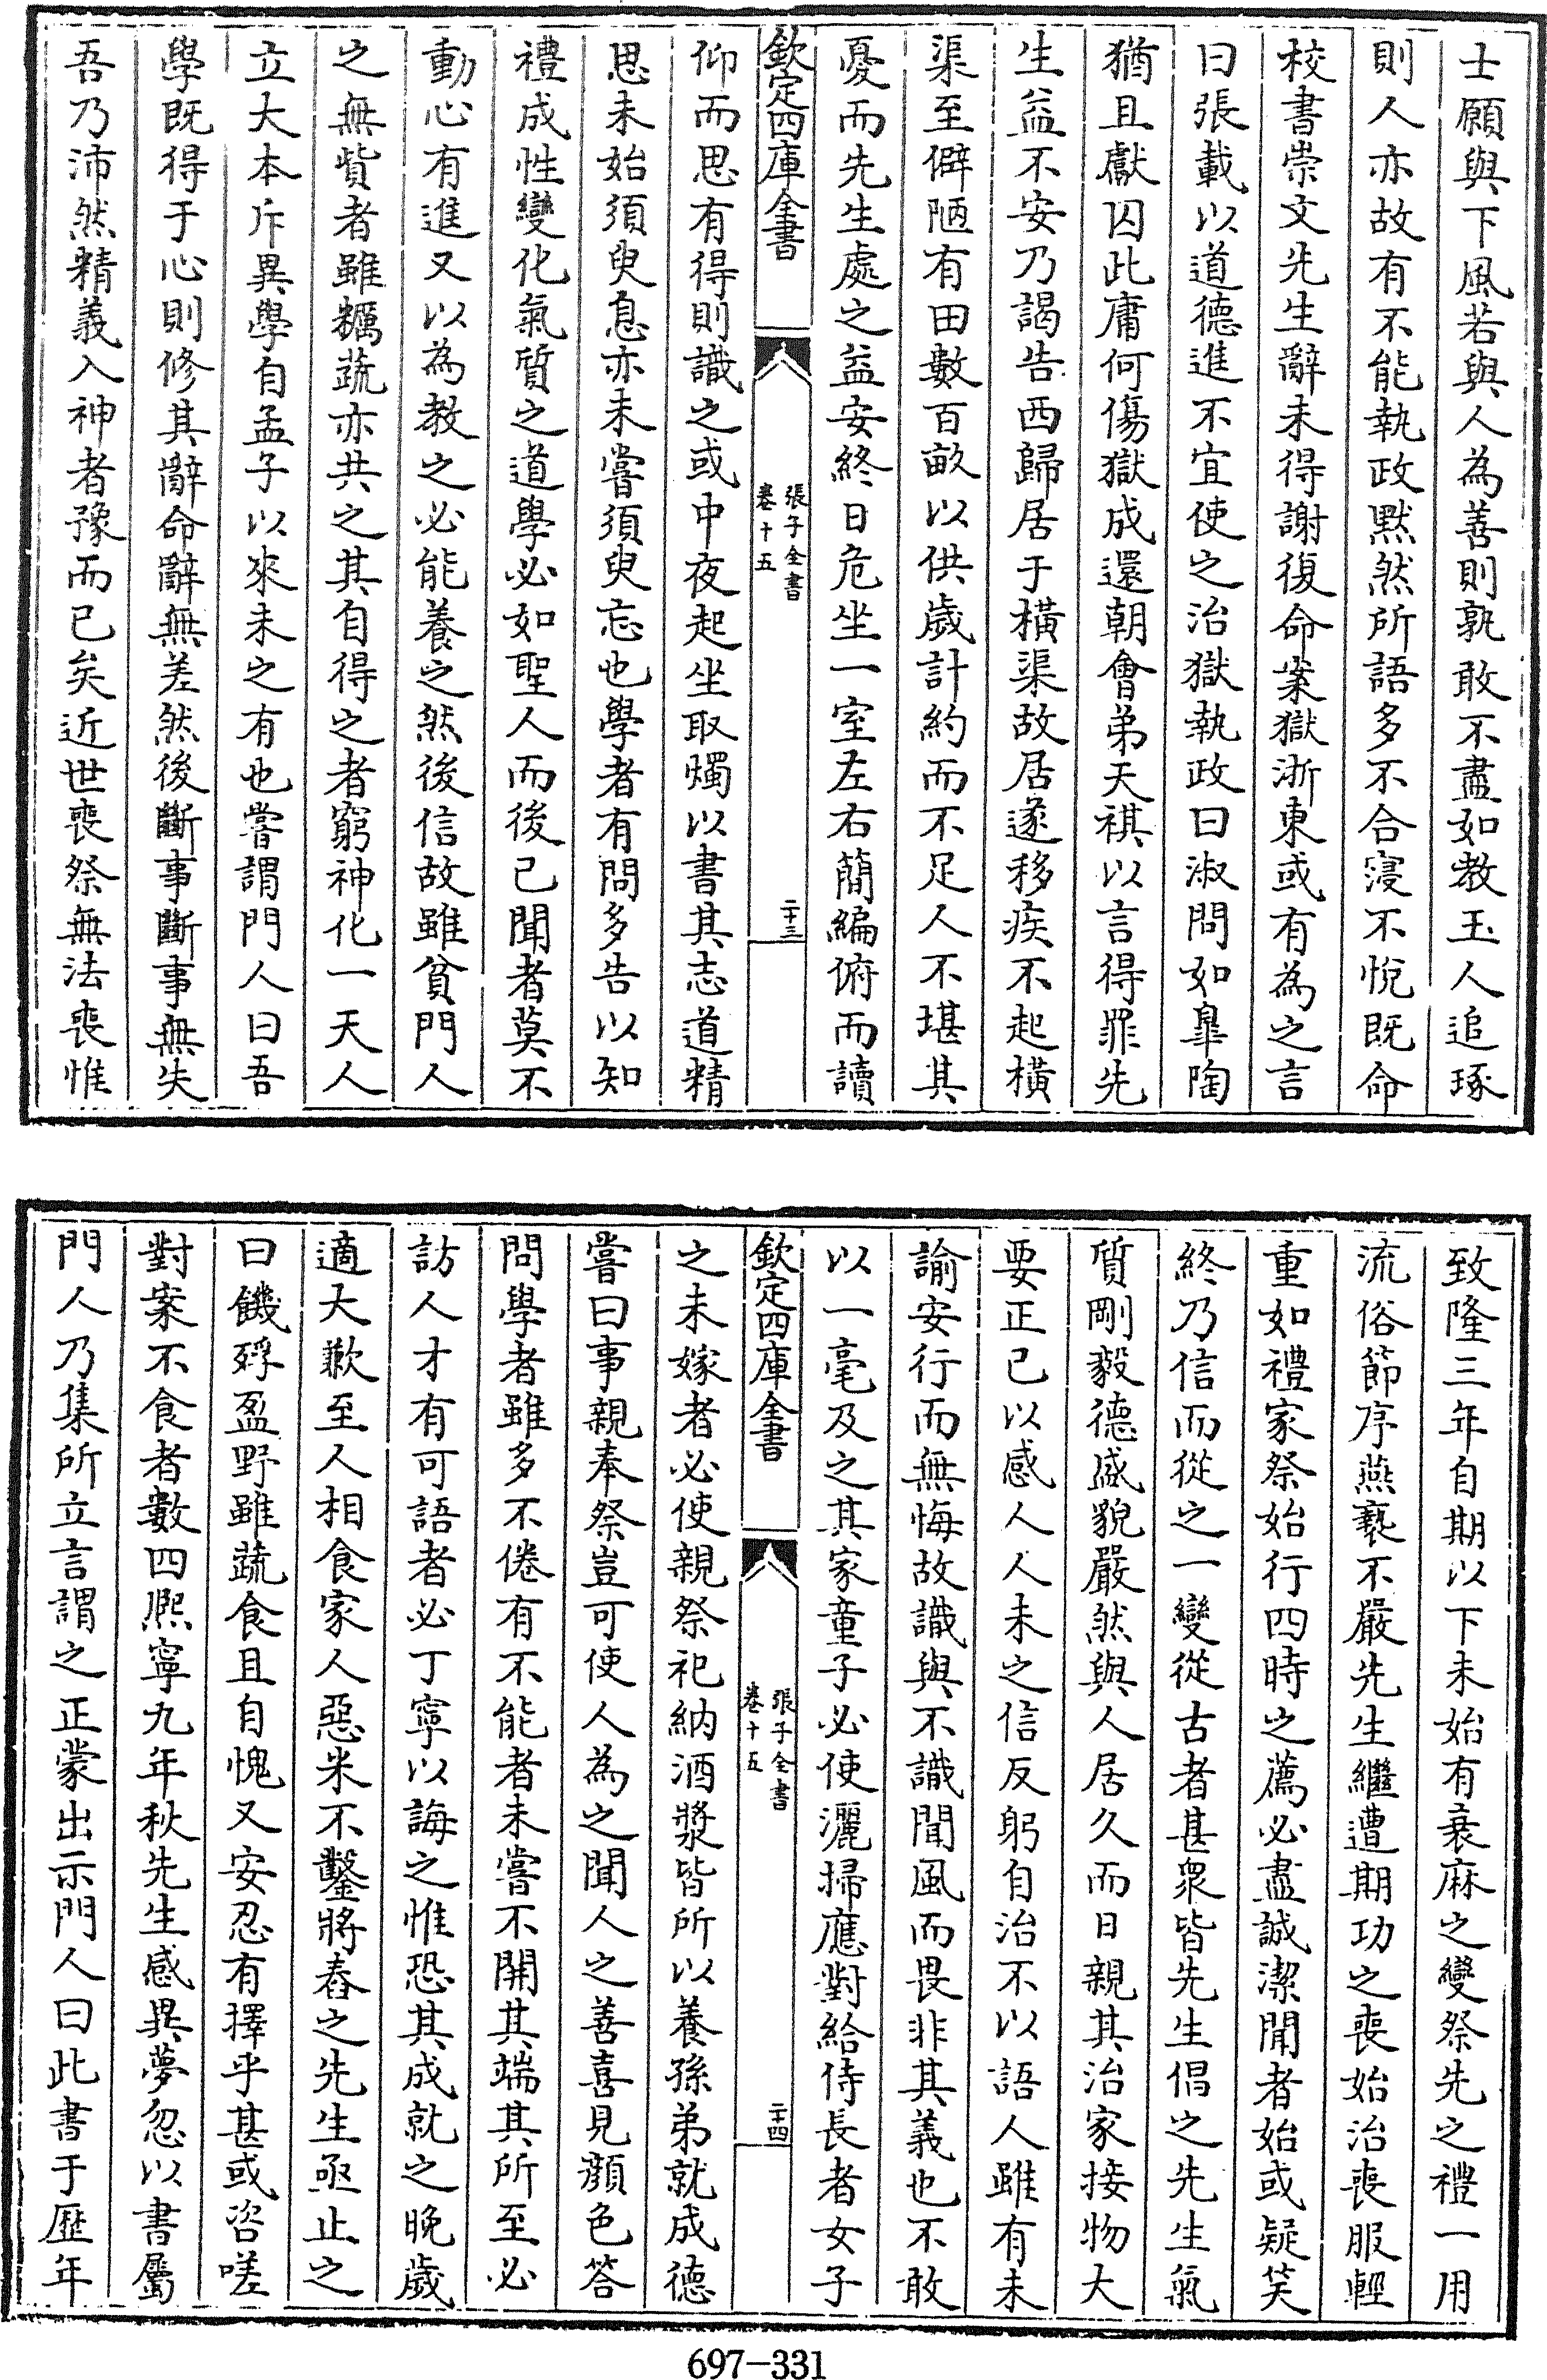 士願與下風若與人為善則孰敢不盡如教玉人追琢
則人亦故有不能執政黙然所語多不合寖不悅既命
校書崇文先生辭未得謝復命案獄浙東或有為之言
曰張載以道德進不宜使之治獄執政曰淑問如臯陶
猶且獻囚此庸何傷獄成還朝會弟天祺以言得罪先
生益不安乃謁告西歸居于橫渠故居遂移疾不起橫
渠至僻陋有田數百畝以供歲計約而不足人不堪其
憂而先生處之益安終日危坐一室左右簡編俯而讀
欽定四庫全書
張子全書
卷十五
二十三
仰而思有得則識之或中夜起坐取燭以書其志道精
思未始須臾息亦未嘗須臾忘也學者有問多告以知
禮成性變化氣質之道學必如聖人而後已聞者莫不
動心有進又以為教之必能養之然後信故雖貧門人
之無貲者雖糲蔬亦共之其自得之者窮神化一天人
立大本斥異學自孟子以來未之有也嘗謂門人曰吾
學既得于心則修其辭命辭無差然後斷事斷事無失
吾乃沛然精義入神者豫而已矣近世喪祭無法喪惟
致隆三年自期以下未始有衰麻之變祭先之禮一用
流俗節序燕褻不嚴先生繼遭期功之喪始治喪服輕
重如禮家祭始行四時之薦必盡誠潔聞者始或疑笑
終乃信而從之一變從古者甚衆皆先生倡之先生氣
質剛毅德盛貌嚴然與人居久而日親其治家接物大
要正己以感人人未之信反躬自治不以語人雖有未
諭安行而無悔故識與不識聞風而畏非其義也不敢
以一毫及之其家童子必使灑掃應對給侍長者女子
欽定四庫全書
張子全書
卷十五
二十四
之未嫁者必使親祭祀納酒漿皆所以養孫弟就成德
嘗曰事親奉祭豈可使人為之聞人之善喜見顔色答
問學者雖多不倦有不能者未嘗不開其端其所至必
訪人才有可語者必丁寧以誨之惟恐其成就之晚歲
適大歉至人相食家人惡米不鑿將舂之先生亟止之
曰饑殍盈野雖蔬食且自愧又安忍有擇乎甚或咨嗟
對案不食者數四熙寧九年秋先生感異夢忽以書屬
門人乃集所立言謂之正蒙出示門人曰此書于歷年
697-331